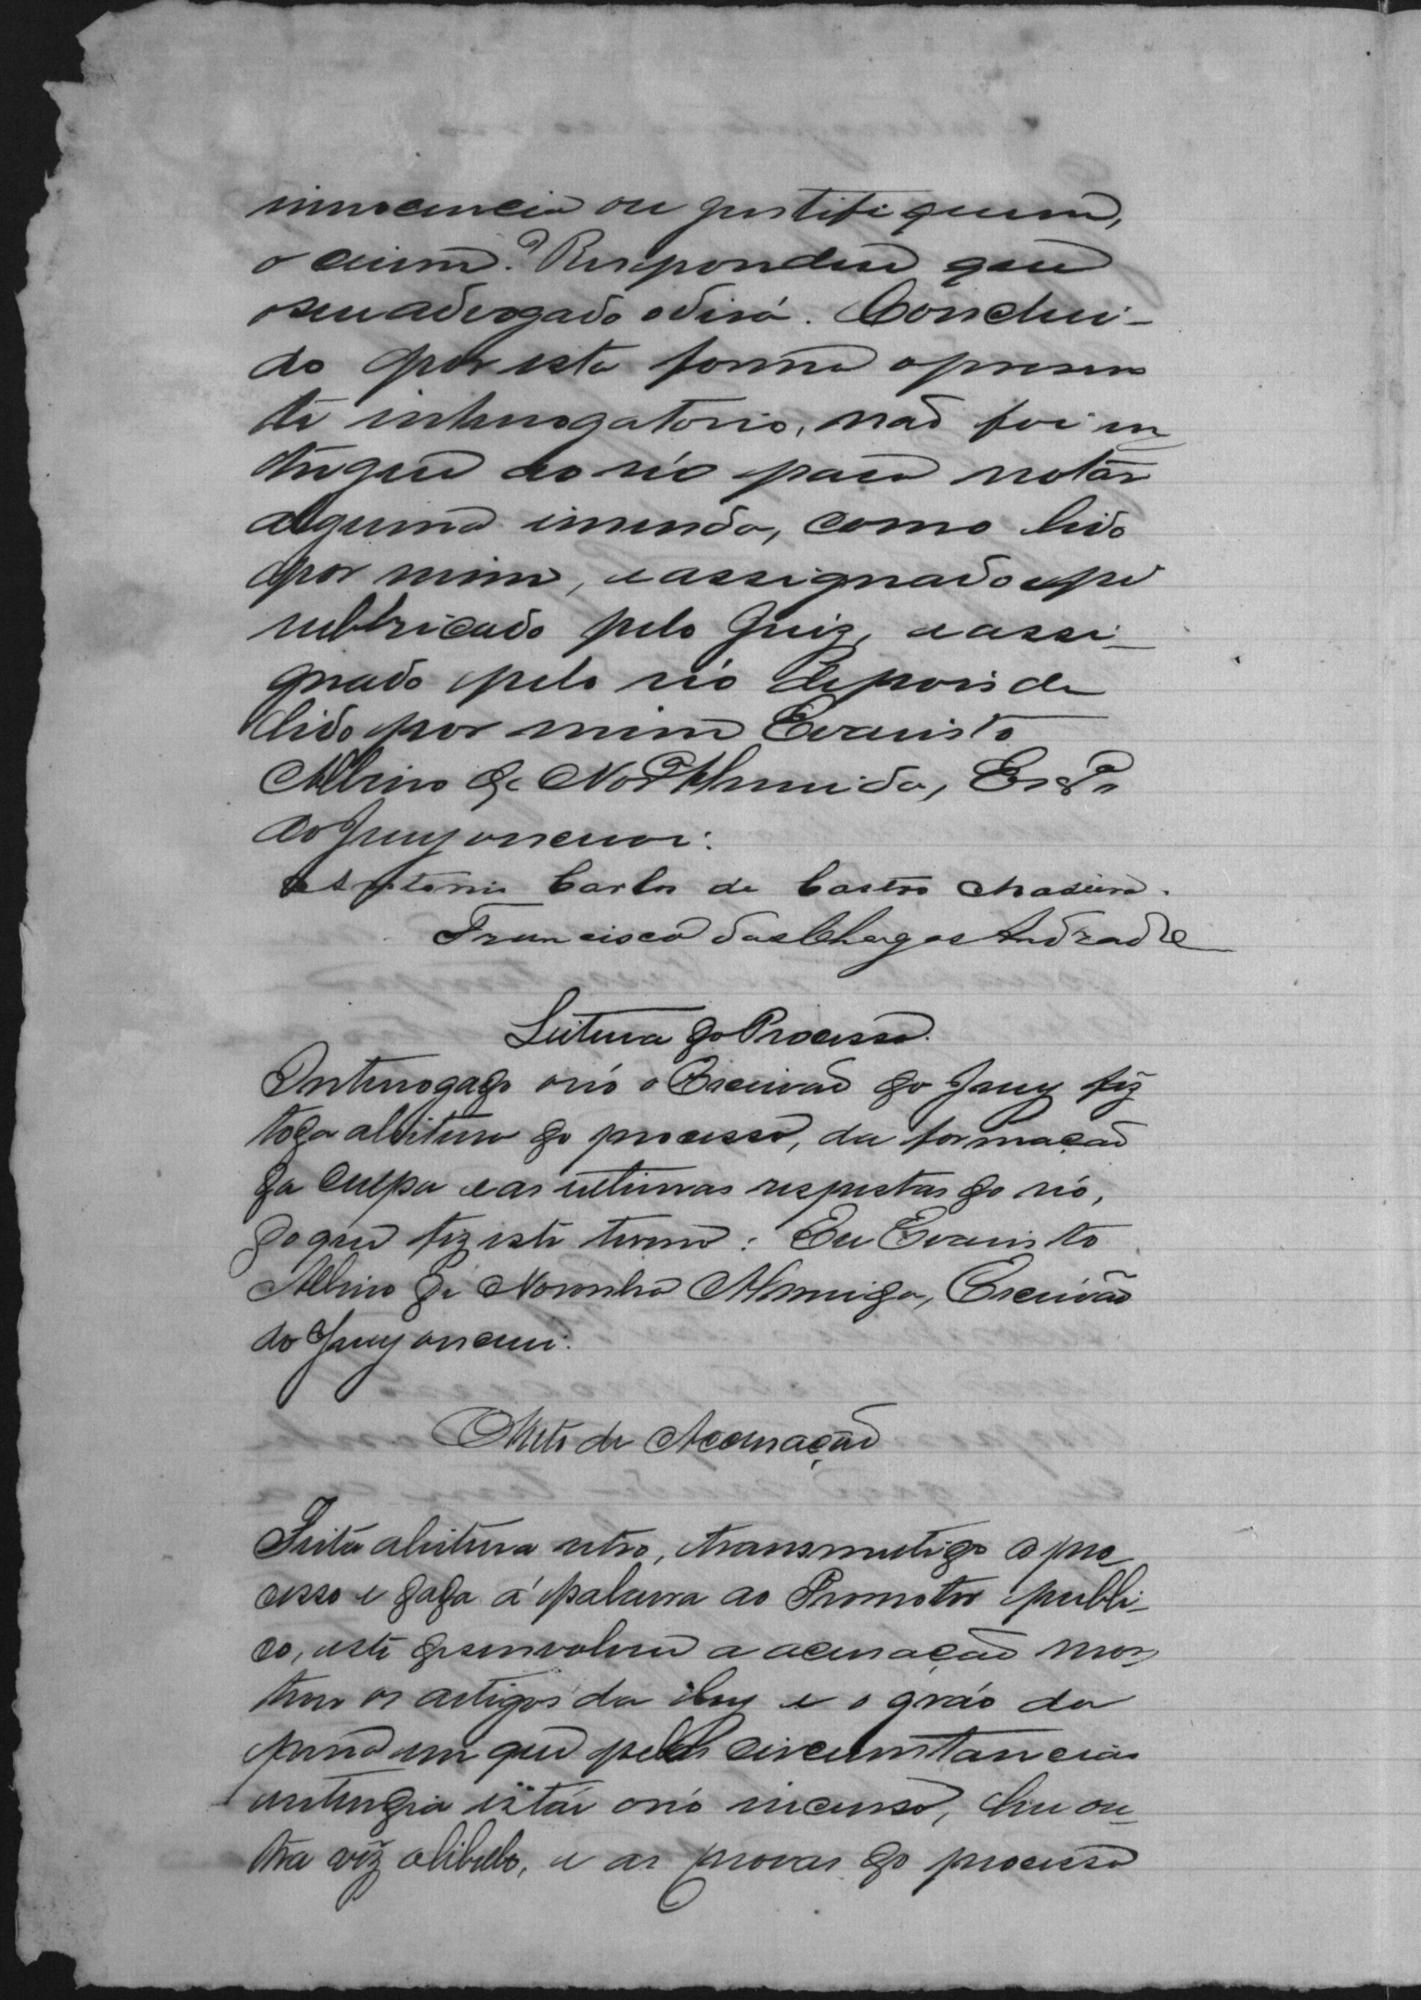 innocencia ou justifiquem,
o crime? Respondeu que
o seu advogado o dirá. Conclui-
do por esta forma o presen
te interrogatorio, não foi en
tregue ao réo para notar
alguma imenda, como lido
por mim, e assignado e
rubbricado pelo Juiz, e assi-
gnado pelo réo depois de
lido por mim Evaristo
Albino de Nor.ª Almeida, Esc.ᵐ
do Jury oscrevi:
Antonio Carlos de Castro Madeira.
Francisco das Chagas Andrade
Leitura do Processo.
Interrogado o réo o Escrivão do Jury fez
toda a leitura do processo, da formação
da culpa e as ultimas respostas do réo,
do que fiz este termo: Eu Evaristo
Albino de Noronha Almeida, Escrivão
do Jury oscrevi:
Acto de Accusação
Feita a leitura retro, transmetido o pro
cesso e dada á palavra ao Promotor publi-
co, este desenvolveu a accusação mos
trou os artigos da ley e o gráo da
pena em que pelas circumstancias
entendia estár o réo incurso, leu ou-
tra vêz o libello, e as provas do processo